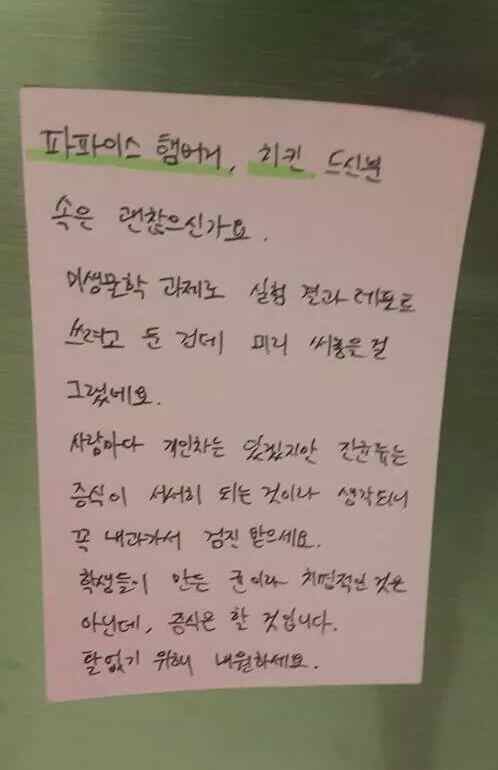 파파이스 햄버거, 치킨 드신분
속은 괜찮으신가요.
미생물학 과제로 실험 결과 레포트
쓰려고 둔 건데 미리 써놓을걸
그랬네요.
사람마다 개인차는 있겠지만 잔균류는
증식이 서서히 되는 것이라 생각되니
꼭 내과가서 검진 받으세요.
학생들이 만든 균이라 치명적인 것은
아닌데, 증식은 할 것입니다.
탈없기 위해 내원하세요.